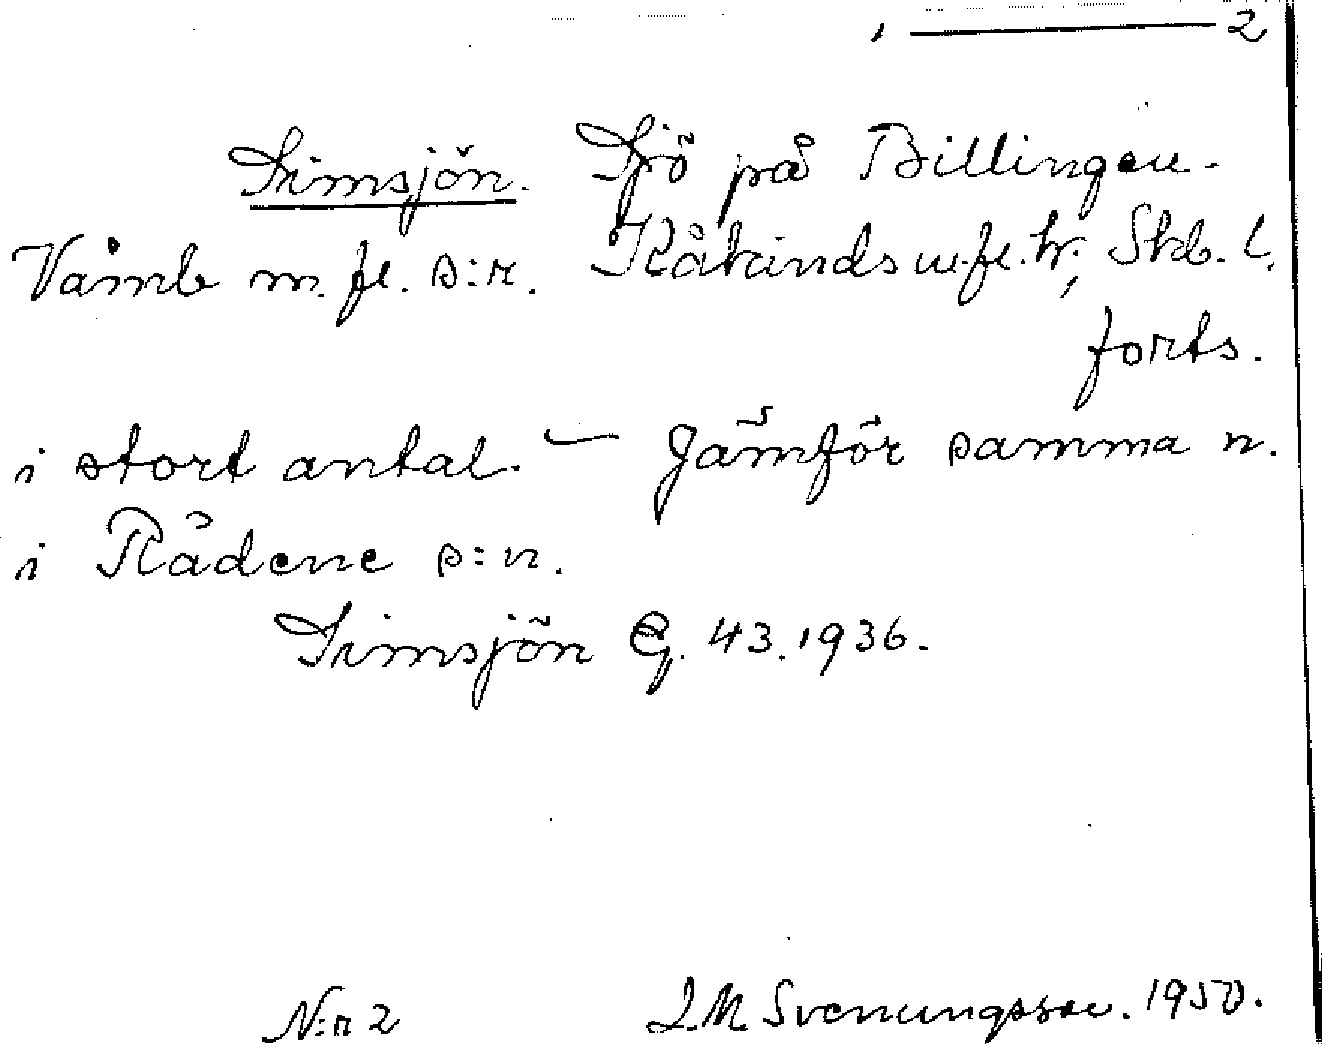 2
Simsjön. Sjö på Billingen.
Våmb m. fl. s:r. Kåkinds m.fl. hr, Skb. l.
forts.
i stort antal. — Jämför samma n.
i Rådene s:n.
Simsjön G. 43. 1936.
N:r 2 J. M. Svenungsson. 1950.